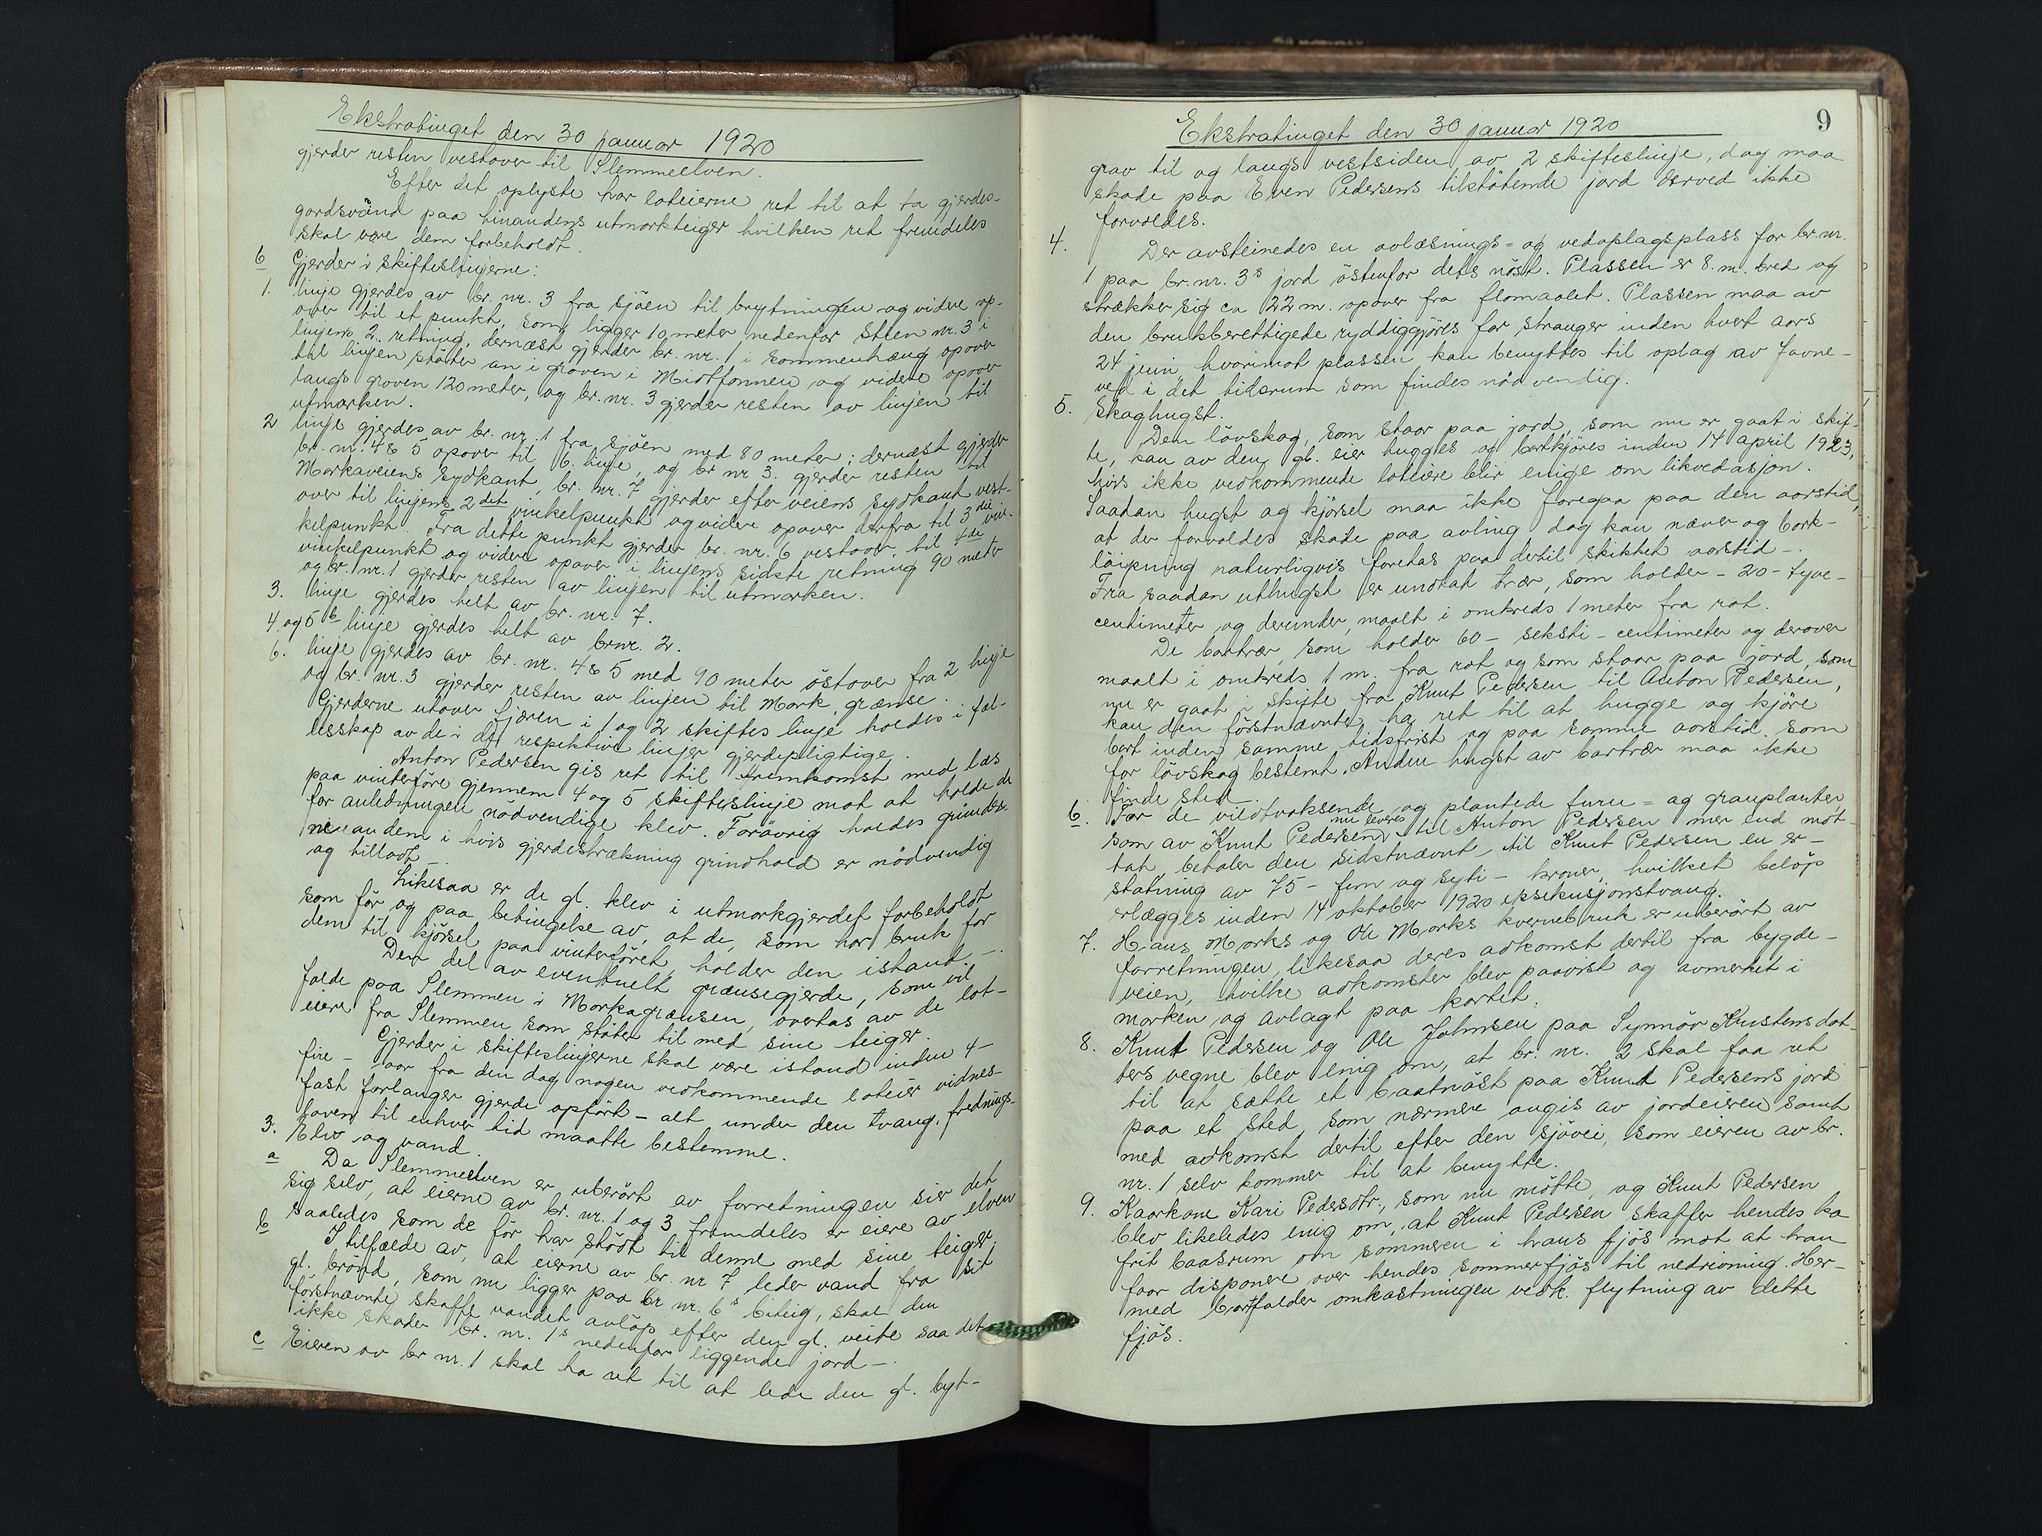 Ekstratinget den 30 januar 1920
gjerder resten vestover til Slemmeelven.
Efter det oplyste har loteierne ret til at ta gjerdes-
gardsvånd paa hinandens utmarkteiger hvilken ret fremdeles
skal være dem forbeholdt.
6 Gjerder i skifteslinjerne:
1. linje gjerdes av br. nr. 3 fra sjöen til brytningen og videre op-
over til et punkt, som ligger 10 meter nedenfor sten nr. 3 i
linjens 2. retning, dernæst gjerder br. nr. 1 i sammenhæng opover
til linjen stöter an i graven i Midtfonnen og videre opover
langs graven 120 meter, og br. nr. 3 gjerder resten av linjen til
utmarken.
2 linje gjerdes av br. nr. 1 fra sjöen med 80 meter; dernæst gjerder
br. nr. 4 & 5 opover til 6. linje, og br nr 3. gjerder resten til
Morkaveiens sydkant, br. nr. 7 gjerder efter veiens sydkant vest-
over til linjens 2det vinkelpunkt og videre opover derfra til 3die
kelpunkt. Fra dette punkt gjerder br. nr. 6 vestover til 4de vin-
vinkelpunkt og videre opover i linjens sidste retning 90 meter
og br. nr. 1 gjerder resten av linjen til utmarken.
3. linje gjerdes helt av br. nr. 7.
4. og 5te linje gjerdes helt av brnr. 2.
6. linje gjerdes av br. nr. 4 & 5 med 90 meter östover fra 2 linje
og br. nr. 3 gjerder resten av linjen til Mork. grænse.
Gjerderne utover fjæren i 1 og 2 skiftes linje holdes i fæl-
lesskap av de i de respektive linjer gjerdepligtige.
Anton Pedersen gis ret til fremkomst med læs
paa vinterföre gjennem 4 og 5 skifteslinje mot at holde de
for anledningen nödvendige klev. Forövrig holdes grinder
av dem i hvis gjerdestrækning grindhold er nödvendig
og tilladt.
Likesaa er de gl. klev i utmarkgjerdet forbeholdt
som för og paa betingelse av, at de, som har bruk for
dem til kjörsel paa vinterföret, holder den istand.
Den del av eventuelt grænsegjerde, som vil
falde paa Slemmen i Morkagrænsen, overtas av de lot-
eiere fra Slemmen som stöter til med sine teiger.
Gjerder i skifteslinjerne skal være istand inden 4-
fire - aar fra den dag nogen vedkommende loteier vidnes-
fast forlanger gjerde opfört - alt under den tvang, frednings-
loven til enhver tid maatte bestemme.
3. Elv og vand.
a Da Slemmeelven er uberört av forretningen sier det
sig selv, at eierne av br. nr. 1 og 3 fremdeles er eiere av elven
saaledes som de för har stödt til denne med sine teiger.
b I tilfælde av, at eierne av br. nr 7 leder vand fra sit
gl. brönd, som nu ligger paa br nr. 6s biteig, skal den
förstnævnte skaffe vandet avlöp efter den gl. veite saa det
ikke skader br. nr. 1s nedenfor liggende jord -.
c Eieren av br nr. 1 skal ha ret til at lede den gl. byt-
Ekstratinget den 30 januar 1920
9
grav til og langs vestsiden av 2 skifteslinje, dog maa
skade paa Even Pedersens tilstötende jord derved ikke
forvoldes.
4. Der avsteinedes en avlæsnings- og vedoplagsplass for br. nr.
1 paa br. nr. 3s jord östenfor dets nöst. Plassen er 8. m. bred og
strækker sig ca 22 m. opover fra flomaalet. Plassen maa av
den bruksberettigede ryddiggjöres for stranger inden hvert aars
24 juni, hvorimot plassen kan benyttes til oplag av favne-
ved i det tidsrum som findes nödvendig.
5. Skoghugst.
Den lövskog, som staar paa jord, som nu er gaat i skif-
te, kan av den gl. eier hugges og bortkjöres inden 14 april 1923,
hvis ikke vedkommende loteiere blir enige om likvidasjon.
Saadan hugst og kjörsel maa ikke foregaa paa den aarstid,
at der forvoldes skade paa avling dog kan næver og bork-
löipning naturligvis foretas paa dertil skikket aarstid -.
Fra saadan uthugst er undtat trær, som holder - 20 - tyve -
centimeter og derunder, maalt i omkreds 1 meter fra rot.
De bartrær, som holder 60 - seksti - centimeter og derover
maalt i omkreds 1 m. fra rot og som staar paa jord, som
nu er gaat i skifte fra Knut Pedersen til Anton Pedersen,
kan den förstnævnte ha ret til at hugge og kjöre
bort inden samme tidsfrist og paa samme aarstid som
for lövskog bestemt. Anden hugst av bartrær maa ikke
finde sted.
6. For de vildtvoksende og plantede furu- og granplanter,
som av Knut Pedersen nu leveres til Anton Pedersen mer end mot-
tat, betaler den sidstnævnte til Knut Pedersen en er-
statning av 75 - fem og sytti - kroner, hvilket belöp
erlægges inden 14 oktober 1920 u eksekusjonstvang.
7. Hans Morks og Ole Morks kvernebruk er uberört av
forretningen, likesaa deres adkomst dertil fra bygde-
veien, hvilke adkomster blev paavist og avmerket i
marken og avlagt paa kartet.
8. Knut Pedersen og Ole Johnsen paa Synnöv Knutensdat-
ters vegne blev enig om, at br. nr. 2 skal faa ret
til at sætte et baatnöst paa Knut Pedersens jord
paa et sted, som nærmere angis av jordeieren samt
med adkomst dertil efter den sjövei, som eieren av br.
nr. 1 selv kommer til at benytte.
9. Kaarkone Kari Pedersdtr, som nu mötte, og Knut Pedersen
blev likeledes enig om, at Knut Pedersen skaffer hendes ko
frit baasrum om sommeren i hans fjös mot at han
faar disponere over hendes sommerfjös til nedrivning. Her-
med bortfalder omkastningen vedk. flytning av dette
fjös.